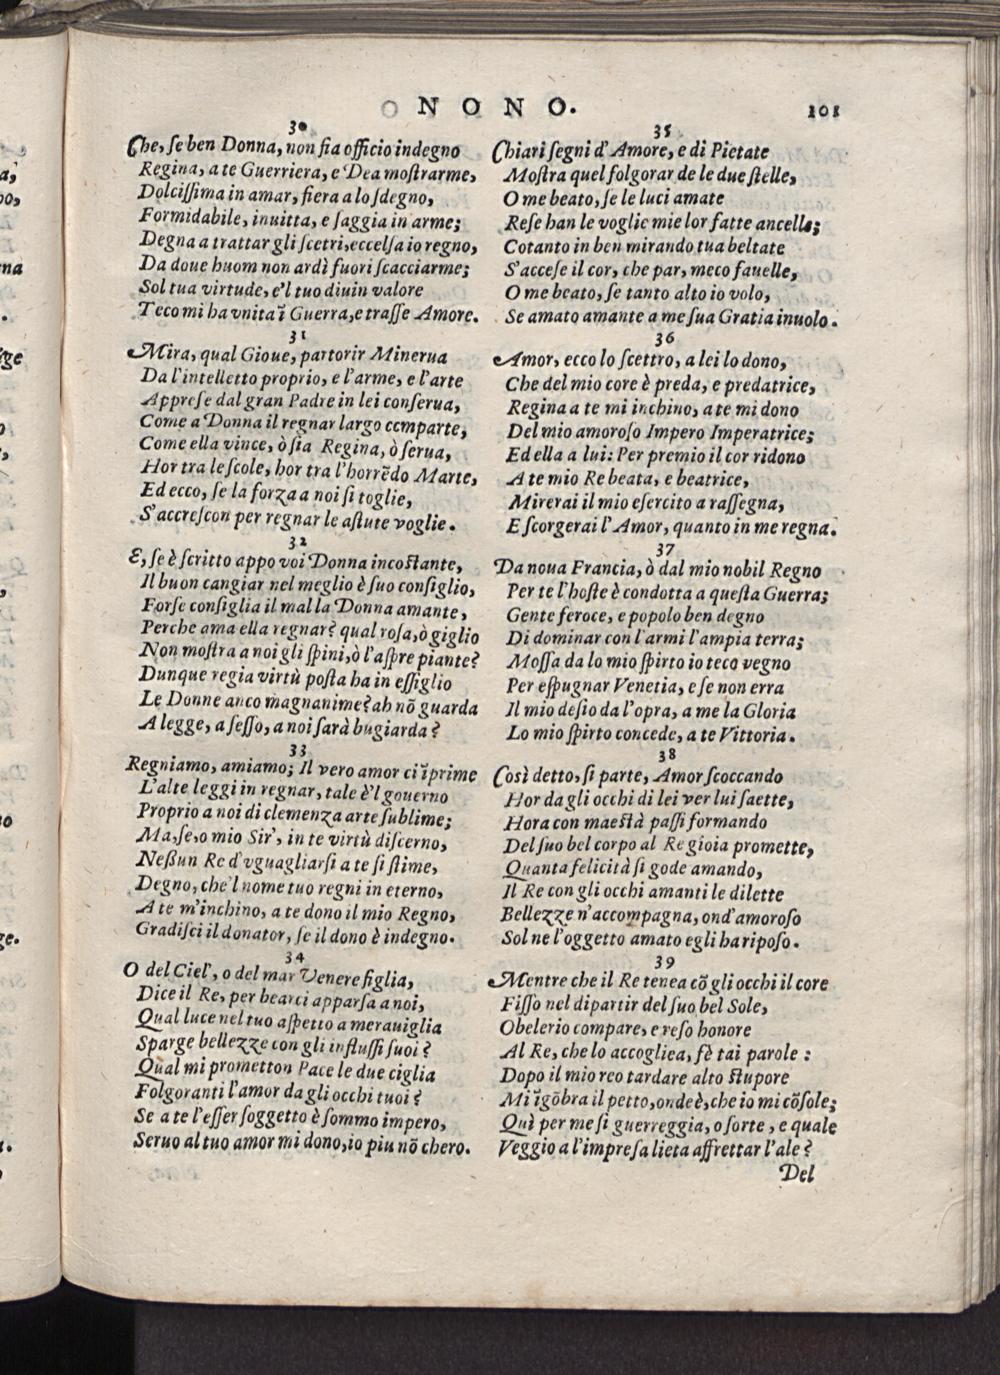 NONO. 101
30
Che, ſe ben Donna, non ſia officio indegno
Regina, a te Guerriera, e Dea moſtrarme,
Dolciſſima in amar, fiera a lo ſdegno,
Formidabile, inuitta, e ſaggia in arme;
Degna a trattar gli ſcetri, eccelſa io regno,
Da doue huom non ardì fuori ſcacciarme;
Sol tua virtude, e'l tuo diuin valore
Teco mi ha vnita ĩ Guerra, e traſſe Amore.
31
Mira, qual Gioue, partorir Minerua
Da l'intelletto proprio, e l'arme, e l'arte
Appreſe dal gran Padre in lei conſerua,
Come a Donna il regnar largo comparte,
Come ella vince, ò ſia Regina, ò ſerua,
Hor tra le ſcole, hor tra l'horrẽdo Marte,
Ed ecco, ſe la forza a noi ſi toglie,
S'accreſcon per regnar le aſtute voglie.
32
E, ſe è ſcritto appo voi Donna incoſtante,
Il buon cangiar nel meglio è ſuo conſiglio,
Forſe conſiglia il mal la Donna amante,
Perche ama ella regnar? qual roſa, ò giglio
Non moſtra a noi gli ſpini, ò l'aſpre piante?
Dunque regia virtù poſta ha in eſſiglio
Le Donne anco magnanime? ah nõ guarda
A legge, a ſeſſo, a noi ſarà bugiarda?
33
Regniamo, amiamo; Il vero amor ci ĩprime
L'alte leggi in regnar, tale è'l gouerno
Proprio a noi di clemenza arte ſublime;
Ma, ſe, o mio Sir', in te virtù diſcerno,
Neßun Re d'vguagliarſi a te ſi ſtime,
Degno, che'l nome tuo regni in eterno,
A te m'inchino, a te dono il mio Regno,
Gradiſci il donator, ſe il dono è indegno.
34
O del Ciel', o del mar Venere figlia,
Dice il Re, per bearci apparſa a noi,
Qual luce nel tuo aſpetto a merauiglia
Sparge bellezze con gli influſſi ſuoi?
Qual mi prometton Pace le due ciglia
Folgoranti l'amor da gli occhi tuoi?
Se a te l'eſſer ſoggetto è ſommo impero,
Seruo al tuo amor mi dono, io piu nõ chero.
35
Chiari ſegni d'Amore, e di Pietate
Moſtra quel folgorar de le due ſtelle,
O me beato, ſe le luci amate
Reſe han le voglie mie lor fatte ancelle;
Cotanto in ben mirando tua beltate
S'acceſe il cor, che par, meco fauelle,
O me beato, ſe tanto alto io volo,
Se amato amante a me ſua Gratia inuolo.
36
Amor, ecco lo ſcettro, a lei lo dono,
Che del mio core è preda, e predatrice,
Regina a te mi inchino, a te mi dono
Del mio amoroſo Impero Imperatrice;
Ed ella a lui: Per premio il cor ridono
A te mio Re beata, e beatrice,
Mirerai il mio eſercito a raſſegna,
E ſcorgerai l'Amor, quanto in me regna.
37
Da noua Francia, ò dal mio nobil Regno
Per te l'hoſte è condotta a queſta Guerra;
Gente feroce, e popolo ben degno
Di dominar con l'armi l'ampia terra;
Moſſa da lo mio ſpirto io teco vegno
Per eſpugnar Venetia, e ſe non erra
Il mio deſio da l'opra, a me la Gloria
Lo mio ſpirto concede, a te Vittoria.
38
Così detto, ſi parte, Amor ſcoccando
Hor da gli occhi di lei ver lui ſaette,
Hora con maeſtà paſſi formando
Del ſuo bel corpo al Re gioia promette,
Quanta felicità ſi gode amando,
Il Re con gli occhi amanti le dilette
Bellezze n'accompagna, ond'amoroſo
Sol ne l'oggetto amato egli ha ripoſo.
39
Mentre che il Re tenea cõ gli occhi il core
Fiſſo nel dipartir del ſuo bel Sole,
Obelerio compare, e reſo honore
Al Re, che lo accogliea, fè tai parole:
Dopo il mio reo tardare alto ſtupore
Mi ĩgõbra il petto, onde è, che io mi cõſole;
Quì per me ſi guerreggia, o ſorte, e quale
Veggio a l'impreſa lieta affrettar l'ale?
Del